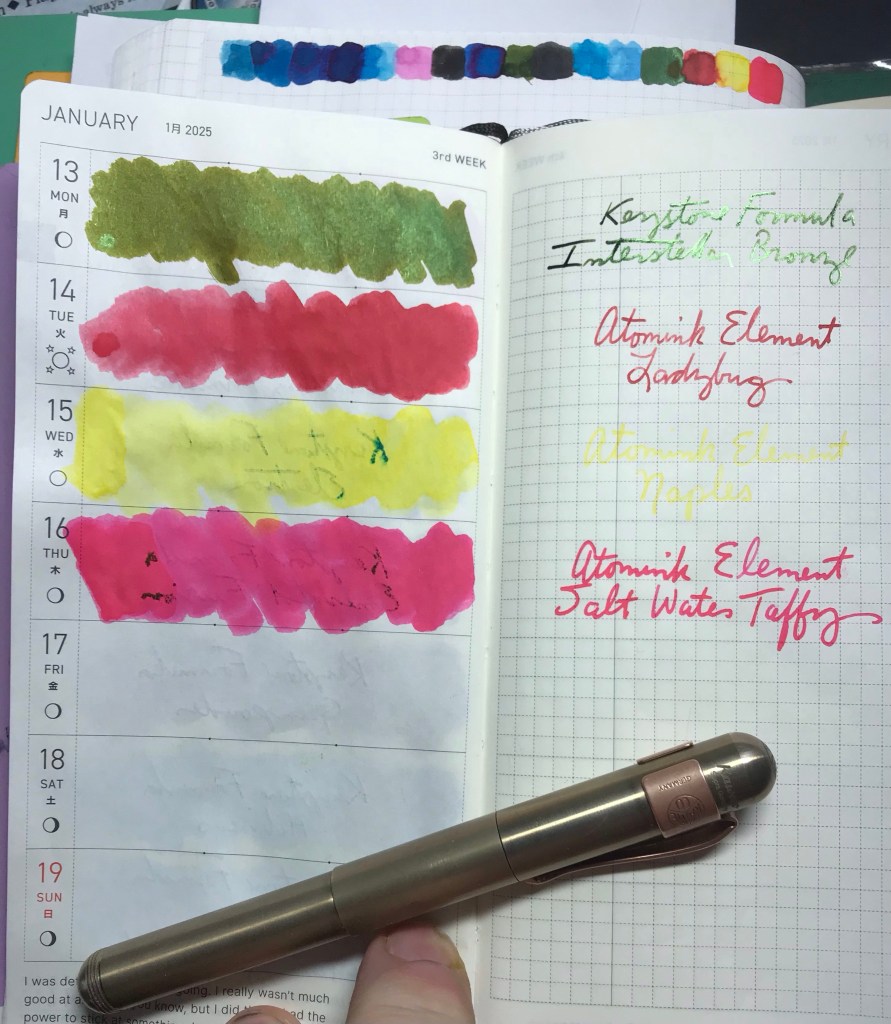 always
JANUARY 1月 2025
3rd WEEK
13
MON
月
14
TUE
火
15
WED
水
16
THU
木
17
FRI
金
18
SAT
土
19
SUN
日
I was going. I really wasn't much
good at a you know, but I did the
power to stick at something
Keystone Formula
Interstellar Bronze
Atomink Element
Ladybug
Atomink Element
Naples
Atomink Element
Salt Water Taffy
GERMANY